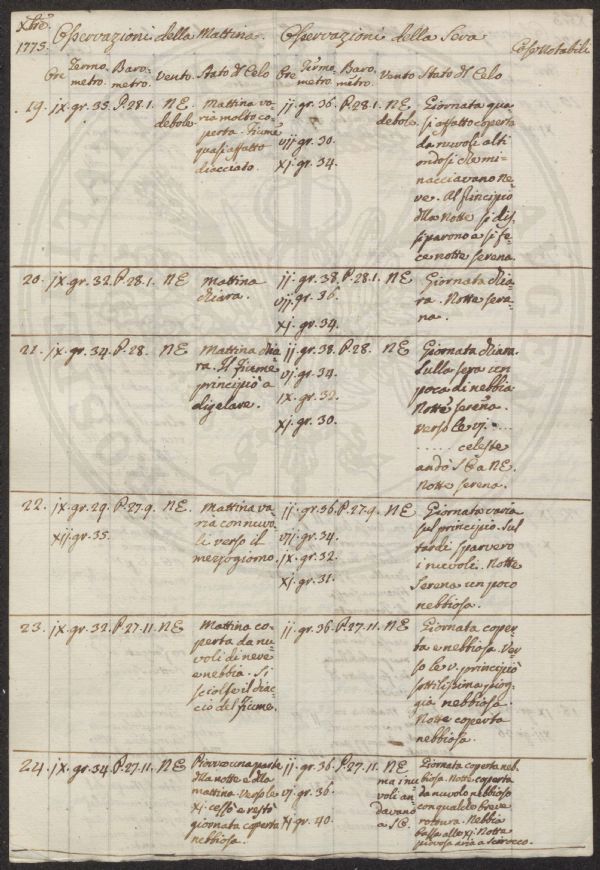 Xbre.
1775. Osservazioni della Mattina. Osservazioni della Sera Cose Notabili
Ore Termometro. Barometro. Vento. Stato dl Celo Ore Termometro. Barometro. Vento Stato dl Celo
19. jx. gr. 35. P. 28. 1. NE. debole
Mattina va-
ria molto co-
perta. Fiume
quasi affatto
diacciato.
jj. gr. 36. P. 28. 1. NE debole.
vjj. gr. 30.
xj. gr. 34.
Giornata qua-
si affatto coperta
da nuvoli alti
che mi-
nacciavano Ne-
ve. Al principio
dlla Notte si dis-
siparono a si fe-
ce notte serena.
20. jx. gr. 32. P. 28. 1. NE
Mattina
chiara.
jj. gr. 38. P. 28. 1. NE
vjj. gr. 36.
xj. gr. 34.
Giornata chia-
ra. Notte sere-
na.
21. jx. gr. 34. P. 28. NE
Mattina chia-
ra. Il Fiume
principiò a
digelare.
jj. gr. 38. P. 28. NE
vj. gr. 34.
ix. gr. 32.
xj. gr. 30.
Giornata chiara.
Sulla sera un
poca di nebbia
Notte serena.
verso le vj. ....
...... celeste
andò SE a NE.
Notte serena.
22. jx. gr. 29. P. 27. 9. NE
xij gr. 35.
Mattina va-
ria con nuvo-
li verso il
mezzogiorno.
jj. gr. 36. P. 27. 9. NE
vjj. gr. 34.
jx. gr. 32.
xj. gr. 31.
Giornata varia
sul principio. Sul
tardi sparvero
i nuvoli. Notte
serena un poco
nebbiosa.
23. jx. gr. 32. P. 27. 11. NE
Mattina co-
perta da nu-
voli di neve
e nebbia. Si
sciolse il diac-
cio del Fiume.
jj. gr. 36. P. 27. 11. NE
Giornata coper-
ta e nebbiosa. Ver-
so le v. principiò
sottilissima piog-
gia nebbiosa.
Notte coperta
nebbiosa.
24. jx. gr. 34. P. 27. 11. NE
Piovve una parte
dlla notte e dlla
mattina. Verso le
xj. cessò e restò
giornata coperta
nebbiosa.
jj. gr. 36. P. 27. 11. NE
vj. gr. 36.
xj gr. 40.
ma i nu-
voli an-
davano
a SE.
Giornata coperta neb-
biosa. Notte coperta
da nuvolo nebbioso
con qualche breve
rottura. Nebbia
bassa alle xj. Notte
piovosa aria a scirocco.